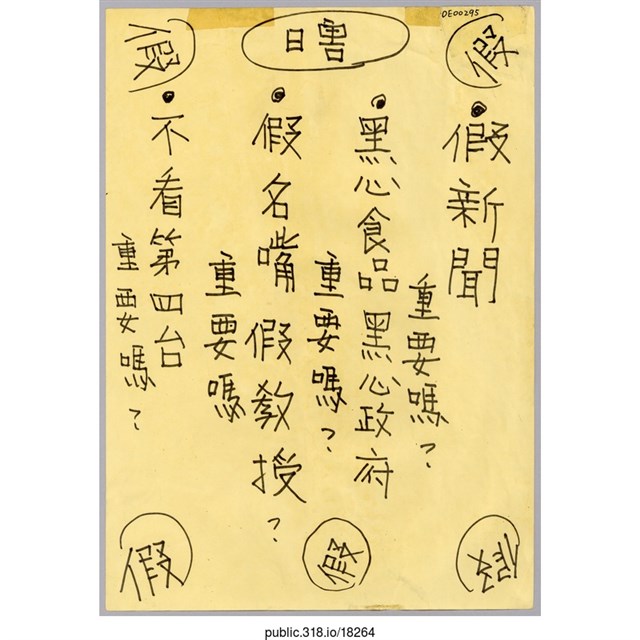 OE00295
假
瞎
假
假新聞
重要嗎？
黑心食品黑心政府
重要嗎？
假名嘴假教授？
重要嗎
不看第四台
重要嗎？
假
假
假
public.318.io/18264